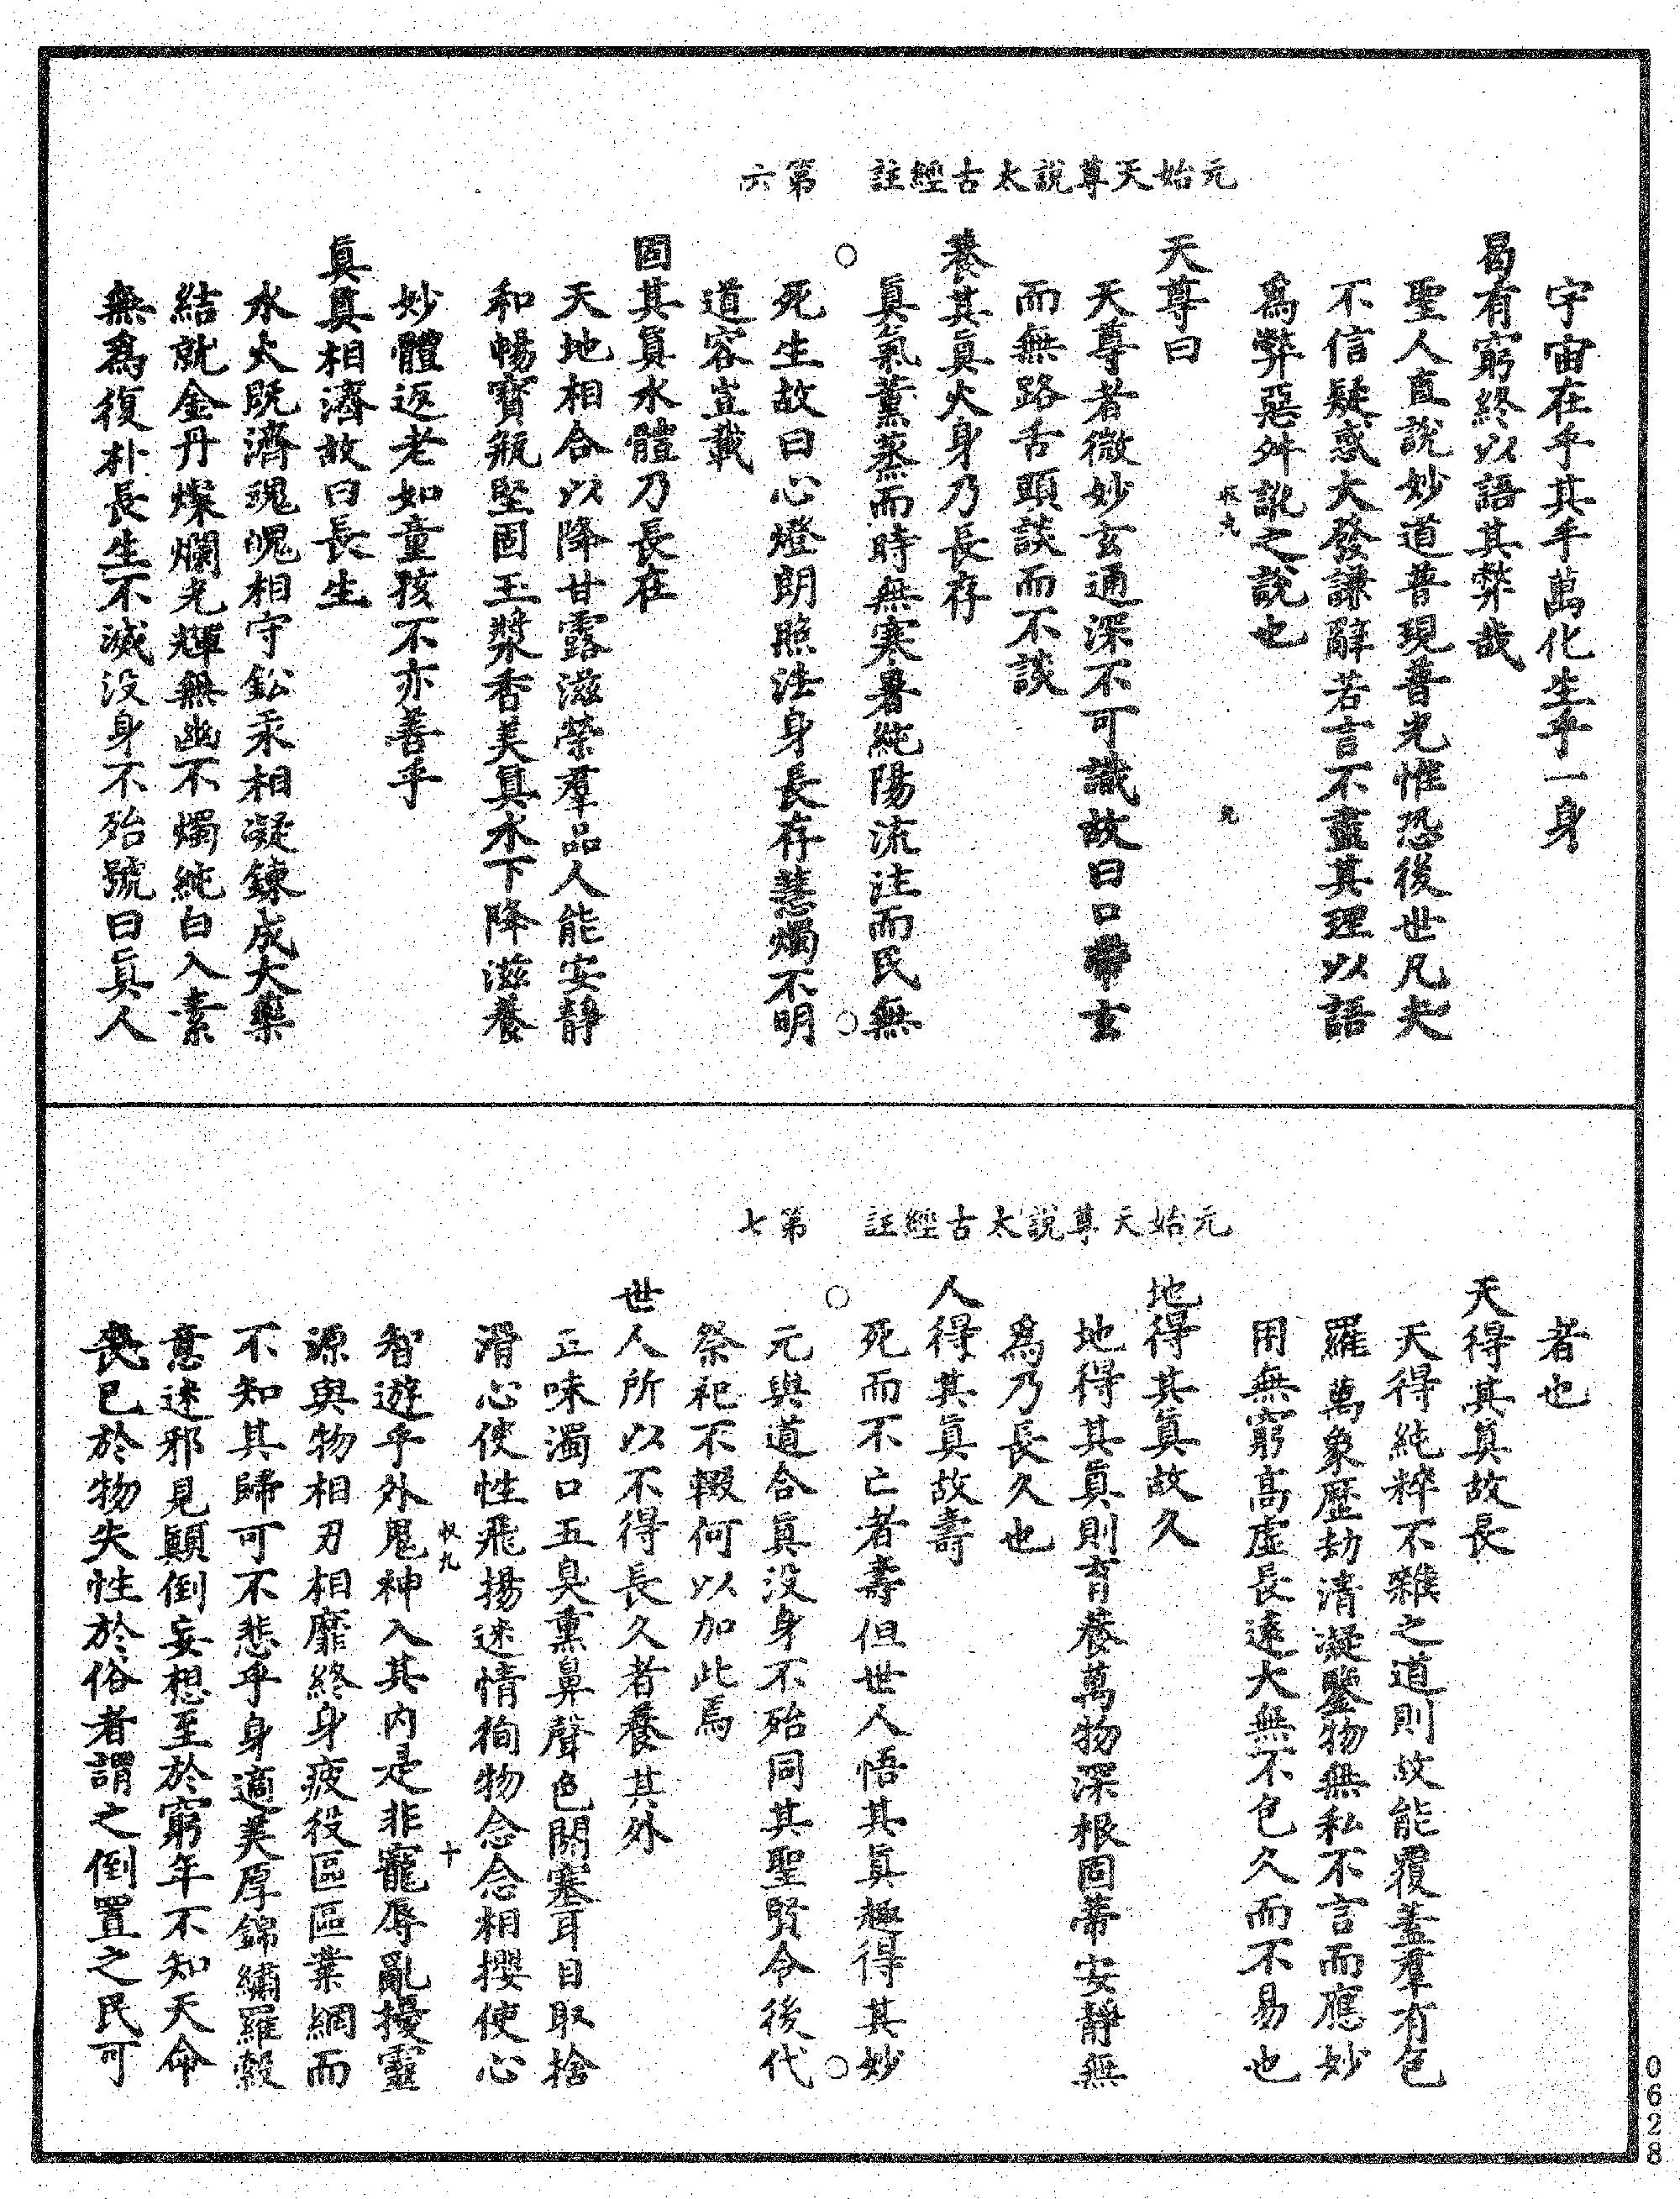 元始天尊說太古經註　第六
宇宙在乎其手萬化生乎一身
曷有窮終以語其弊哉
聖人直說妙道普現普光惟恐後世凡夫
不信疑惑大發謙辭若言不盡其理以語
爲弊惡舛訛之說也
九
天尊曰
天尊者微妙玄通深不可識故曰口帶玄
而無路舌頭談而不談
養其真火身乃長存
真氣薰蒸而時無寒暑純陽流注而民無
死生故曰心燈朗照法身長存慧燭不明
道容豈載
固其真水體乃長在
天地相合以降甘露滋榮羣品人能安靜
和暢寶瓶堅固玉漿香美真水下降滋養
妙體返老如童孩不亦善乎
真真相濟故曰長生
水火既濟魂魄相守鈆汞相凝鍊成大藥
結就金丹燦爛光輝無幽不燭純白入素
無爲復朴長生不滅没身不殆號曰真人
元始天尊說太古經註　第七
者也
天得其真故長
天得純粹不雜之道則故能覆蓋羣有包
羅萬象歷劫清凝鑒物無私不言而應妙
用無窮高虛長遠大無不包久而不易也
地得其真故久
地得其真則育養萬物深根固蒂安靜無
爲乃長久也
人得其真故壽
死而不亡者壽但世人悟其真趣得其妙
元與道合真没身不殆同其聖賢令後代
祭祀不輟何以加此焉
世人所以不得長久者養其外
正味濁口五臭熏鼻聲色關塞耳目取捨
滑心使性飛揚迷情徇物念念相攖使心
十
智遊乎外鬼神入其内是非寵辱亂擾靈
源與物相刃相靡終身疲役區區業網而
不知其歸可不悲乎身適美厚錦繡羅縠
意迷邪見顛倒妄想至於窮年不知天命
喪已於物失性於俗者謂之倒置之民可
0628